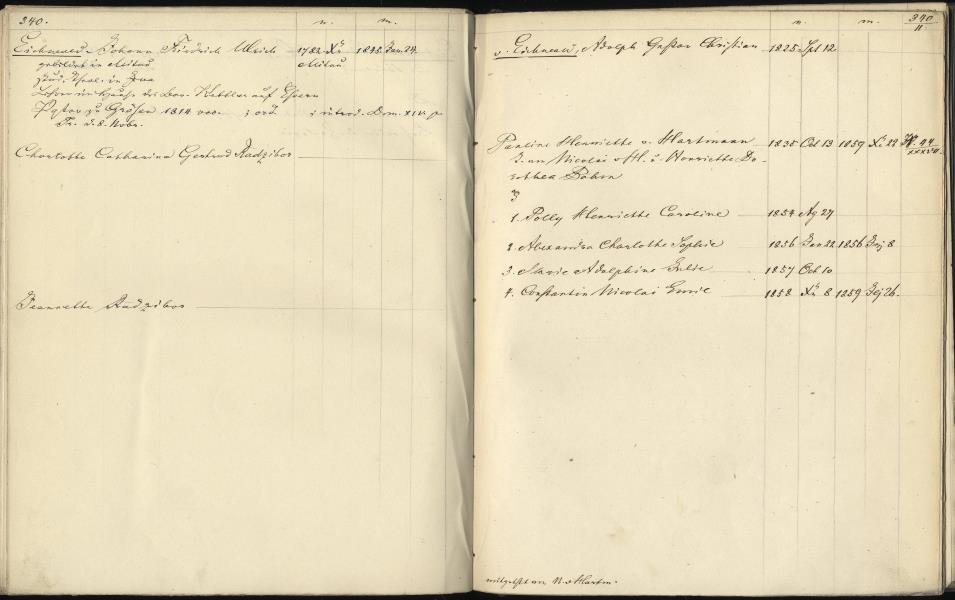 340. n. m.
Eichwald Johann Friedrich Ulrich 1782. 1835. Jan. 24
gebildet in Mitau Mitau
stud. Theol. in Jena
Lehrer im Hause des Bar. Kettler auf Essern
Pastor zu Grösen 1814 ; ord. ; introd. Dom. XIV. p
Tr. d. 8. Nobr.
Charlotte Catharina Gertrud Radzibor
Jeannette Radzibor
n. m. 340/II.
v. Eichwald, Adolph Gustav Christian 1825 Spt 12
Pauline Henriette v. Hartmann 1835 Oct 13 1859 Xr 29 44/XXXVII.
des Nicolai v H. u. Henriette Do-
rothea Böhm
3
1. Polly Henriette Caroline 1854 Ag 27
2. Alexandra Charlotte Sophie 1856 Jan 22 1856 Jnj 8
3. Marie Adolphine Julie 1857 Oct 10
4. Constantin Nicolai Emil 1858 Xr 8 1859 Jlj 26.
mitgetheilt von N. v Hartm.